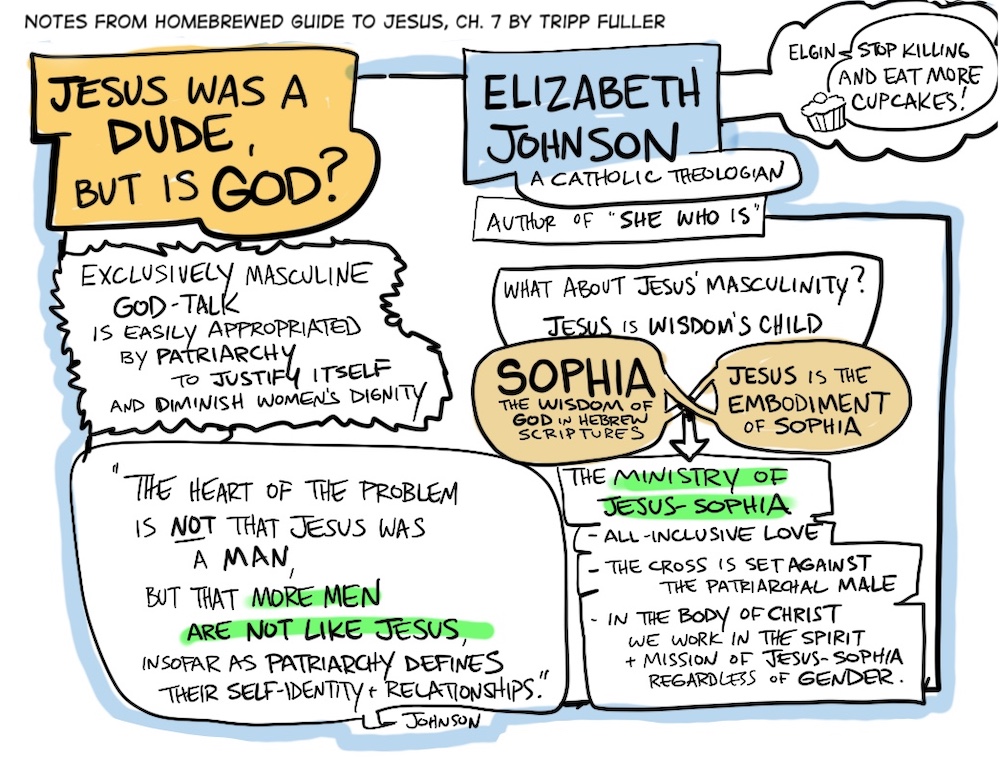 NOTES FROM HOMEBREWED GUIDE TO JESUS, CH. 7 BY TRIPP FULLER
JESUS WAS A
DUDE,
BUT IS GOD?
EXCLUSIVELY MASCULINE
GOD-TALK
IS EASILY APPROPRIATED
BY PATRIARCHY
TO JUSTIFY ITSELF
AND DIMINISH WOMEN'S DIGNITY
"THE HEART OF THE PROBLEM
IS NOT THAT JESUS WAS
A MAN,
BUT THAT MORE MEN
ARE NOT LIKE JESUS,
INSOFAR AS PATRIARCHY DEFINES
THEIR SELF-IDENTITY + RELATIONSHIPS."
JOHNSON
ELIZABETH
JOHNSON
A CATHOLIC THEOLOGIAN
AUTHOR OF "SHE WHO IS"
ELGIN
STOP KILLING
AND EAT MORE
CUPCAKES!
WHAT ABOUT JESUS' MASCULINITY?
JESUS IS WISDOM'S CHILD
SOPHIA
THE WISDOM OF
GOD IN HEBREW
SCRIPTURES
JESUS IS THE
EMBODIMENT
OF SOPHIA
THE MINISTRY OF
JESUS-SOPHIA
- ALL-INCLUSIVE LOVE
- THE CROSS IS SET AGAINST
THE PATRIARCHAL MALE
- IN THE BODY OF CHRIST
WE WORK IN THE SPIRIT
+ MISSION OF JESUS-SOPHIA
REGARDLESS OF GENDER.